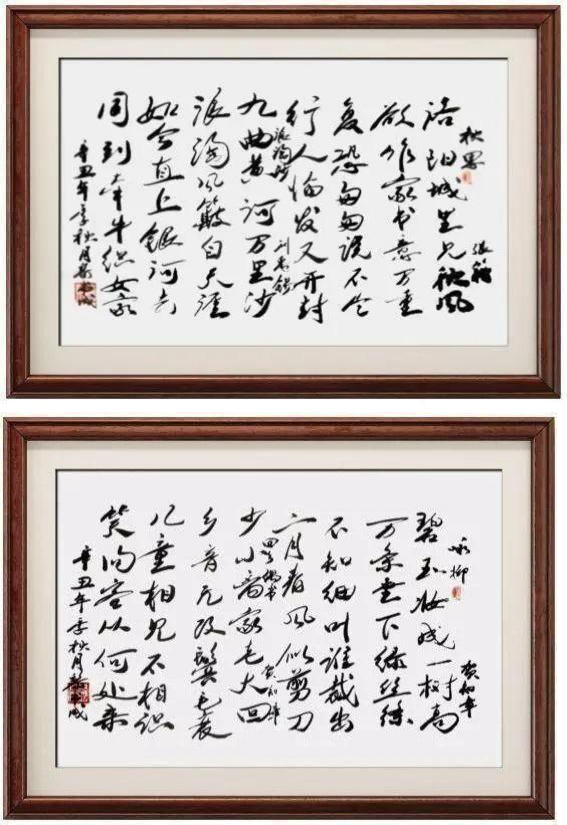 秋思
张籍
洛阳城里见秋风
欲作家书意万重
复恐匆匆说不尽
行人临发又开封
浪淘沙
刘禹锡
九曲黄河万里沙
浪淘风簸自天涯
如今直上银河去
同到牵牛织女家
辛丑年季秋月
咏柳
贺知章
碧玉妆成一树高
万条垂下绿丝绦
不知细叶谁裁出
二月春风似剪刀
回乡偶书
贺知章
少小离家老大回
乡音无改鬓毛衰
儿童相见不相识
笑问客从何处来
辛丑年季秋月